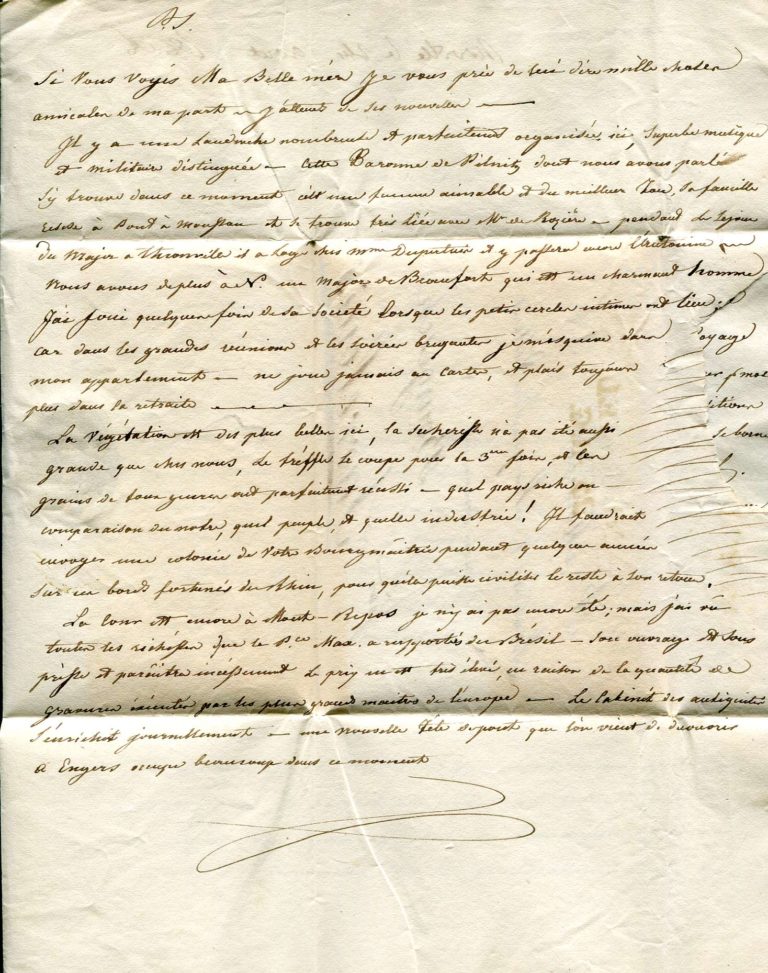 P.S.
Si Vous Voyés Ma Belle mère Je vous prie de lui dire mille choses
amicales de ma part – J'attens de ses nouvelles –
Il y a une Landwehr nombreuse et parfaitement organisée ici, Superbe musique
et militaire distinguée – Cette Baronne de dont nous avons parlé
S'y trouve dans ce moment c'est une femme aimable et du meilleur Ton, Sa famille
reside à Pont à Mousson et se trouve très liée avec Mr de Rozière – pendant le Sejour
du Major à Thionville il a Logé chés mme et y passera encore
Nous avons de plus à N. un Major de Beaufort qui est un charmant homme
J'ai joui quelques fois de sa Société Lorsque les petits cercles intimes ont lieu;
car dans les grandes réunions et les soirées bruyantes je m'esquive dans
mon appartement – ne joue jamais au cartes, et plais toujours
plus dans la retraite –
La Végétation est des plus belles ici, la secheresse n'a pas été aussi
grande que chés nous, Le trèffle se coupe pour la 3me fois, et les
grains de tous genres ont parfaitement réussi – quel pays riche en
comparaison du notre, quel peuple, et quelle industrie! Il faudrait
envoyer une colonie de Votre pendant quelques années
Sur ces bords fortunés du Rhin, pour qu'elle puisse civiliser le reste à Son retour.
La Cour est encore à Mont-Repos je n'y ai pas encore été; mais j'ai vu
toutes les richesses que le P.ce Max. a rapportés du Brésil – Son ouvrage est sous
presse et paraitre incéssament Le prix en est très élevé, en raison de la quantité de
gravures éxécutées par les plus grands maitres de l'Europe – Le Cabinet des antiquités
S'enrichit journellement – une nouvelle Tête que l'on vient de
à Engers occupe beaucoup dans ce moment
voyage
se borne